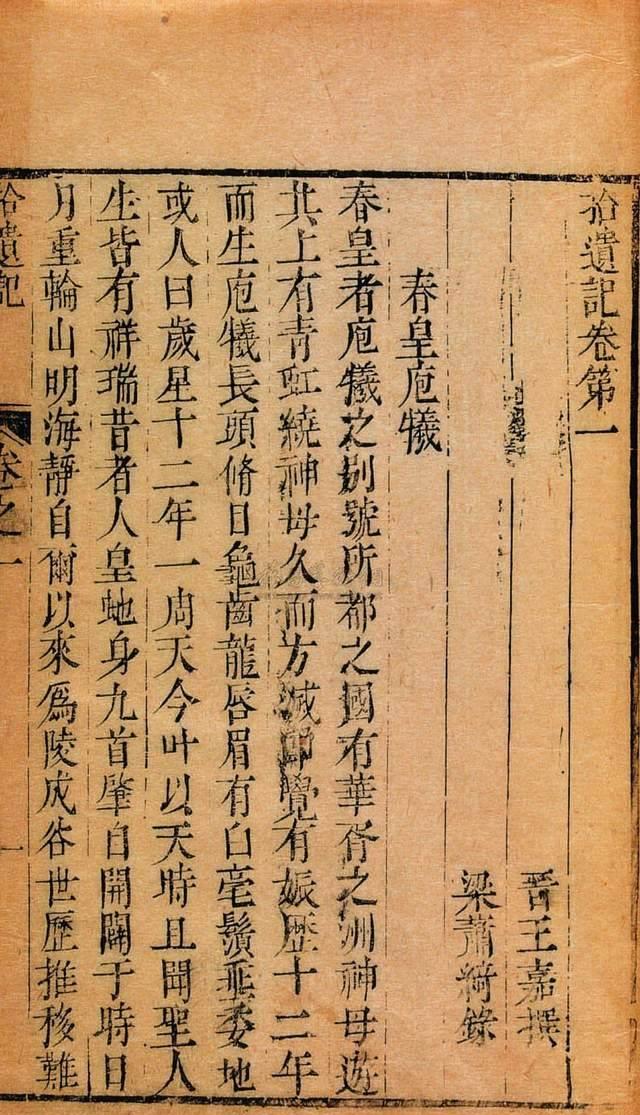 拾遺記卷第一
晋王嘉撰
梁蕭綺錄
春皇庖犧
春皇者庖犧之别號所都之國有華胥之洲神母遊
其上有青虹繞神母久而方滅即覺有娠歷十二年
而生庖犧長頭脩目龜齒龍唇眉有白毫鬚垂委地
或人曰歲星十二年一周天今叶以天時且聞聖人
生皆有祥瑞昔者人皇虵身九首肇自開闢于時日
月重輪山明海靜自爾以來爲陵成谷世歷推移難
拾遺記
卷之一
一